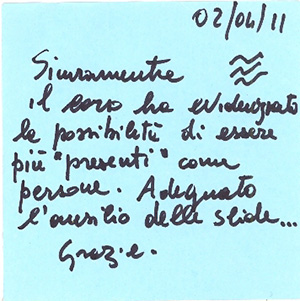 02/04/11
Sicuramente
il corso ha evidenziato
la possibilità di essere
più "presenti" come
persone. Adeguato
l'ausilio delle slide...
Grazie.